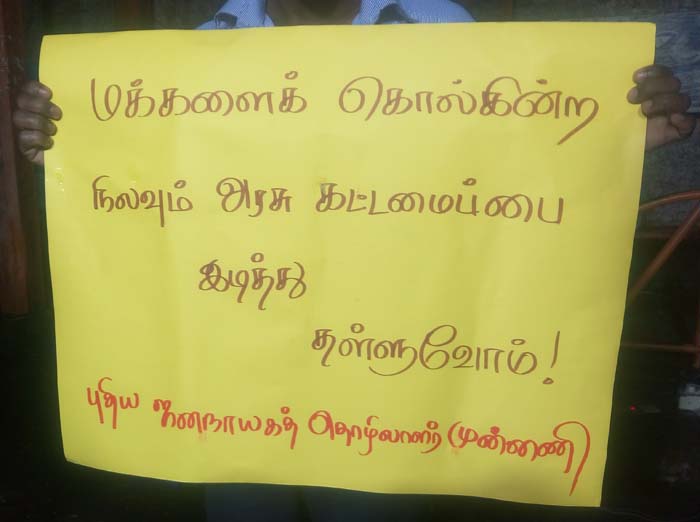 மக்களைக் கொல்கின்ற
நிலவும் அரசு கட்டமைப்பை
இடித்து
தள்ளுவோம்!
புதிய ஜனநாயகத் தொழிலாளர் முன்னணி